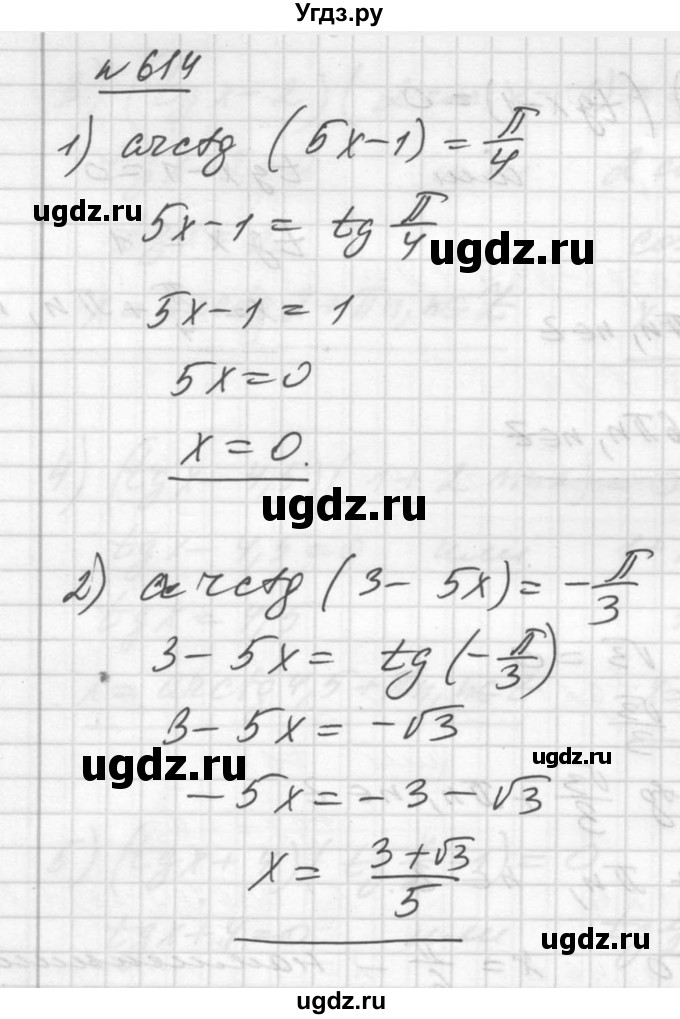 Угдз.ру
№614
1) arctg (5x-1) = π/4
ugdz.ru
5x-1 = tg π/4
ugdz.ru
5x-1 = 1
5x=0
x=0.
ugdz.ru
2) arctg (3-5x) = -π/3
3-5x = tg(-π/3)
3-5x = -√3
ugdz.ru
ugdz.ru
-5x = -3-√3
x = (3+√3)/5
ugdz.ru
ugdz.ru
ugdz.ru